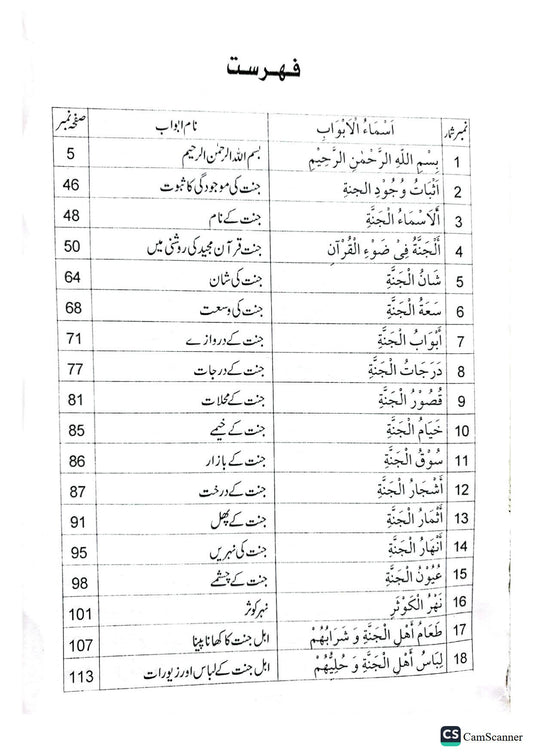 فہرست
نمبر شمار اَسْمَاءُ الْاَبْوَابِ نام ابواب صفحہ نمبر
1 بِسْمِ اللّٰهِ الرَّحْمٰنِ الرَّحِيْمِ بسم اللہ الرحمٰن الرحیم 5
2 اَثْبَاتُ وُجُوْدِ الجنةِ جنت کی موجودگی کا ثبوت 46
3 أَلْاَسْمَاءُ الْجَنَّةِ جنت کے نام 48
4 أَلْجَنَّةُ فِىْ ضَوْءِ الْقُرْآنِ جنت قرآن مجید کی روشنی میں 50
5 شَانُ الْجَنَّةِ جنت کی شان 64
6 سَعَةُ الْجَنَّةِ جنت کی وسعت 68
7 أَبْوَابُ الْجَنَّةِ جنت کے دروازے 71
8 دَرَجَاتُ الْجَنَّةِ جنت کے درجات 77
9 قُصُوْرُ الْجَنَّةِ جنت کے محلات 81
10 خَيَامُ الْجَنَّةِ جنت کے خیمے 85
11 سُوْقُ الْجَنَّةِ جنت کے بازار 86
12 أَشْجَارُ الْجَنَّةِ جنت کے درخت 87
13 أَثْمَارُ الْجَنَّةِ جنت کے پھل 91
14 أَنْهَارُ الْجَنَّةِ جنت کی نہریں 95
15 عُيُوْنُ الْجَنَّةِ جنت کے چشمے 98
16 نَهْرُ الْكَوْثَرِ نہر کوثر 101
17 طَعَامُ أَهْلِ الْجَنَّةِ وَ شَرَابُهُمْ اہل جنت کا کھانا پینا 107
18 لِبَاسُ أَهْلِ الْجَنَّةِ وَ حُلِيُّهُمْ اہل جنت کے لباس اور زیورات 113
CS CamScanner